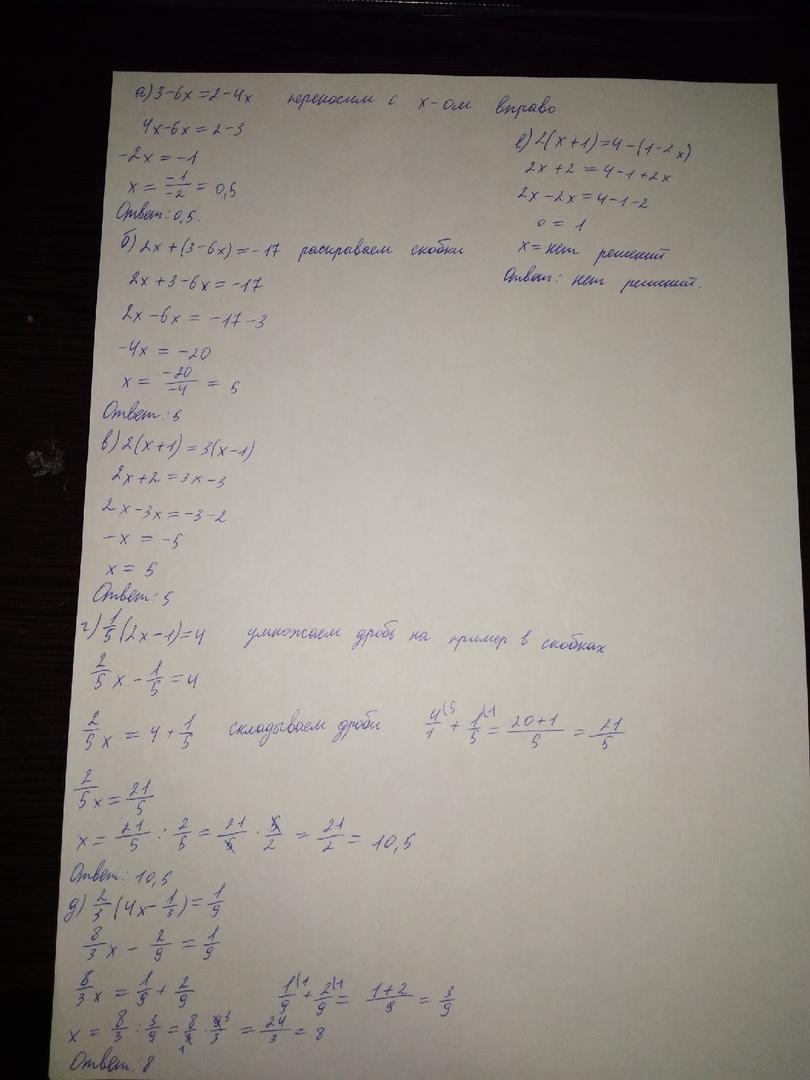 а) 3-6x=2-4x переносим с x-ом вправо
4x-6x=2-3
-2x=-1
x=\frac{-1}{-2}=0,5
Ответ: 0,5.
б) 2x+(3-6x)=-17 раскрываем скобки
2x+3-6x=-17
2x-6x=-17-3
-4x=-20
x=\frac{-20}{-4}=5
Ответ: 5
в) 2(x+1)=3(x-1)
2x+2=3x-3
2x-3x=-3-2
-x=-5
x=5
Ответ: 5
г) \frac{1}{5}(2x-1)=4 умножаем дробь на пример в скобках
\frac{2}{5}x-\frac{1}{5}=4
\frac{2}{5}x=4+\frac{1}{5} складываем дроби \frac{4}{1}^{(5}+\frac{1}{5}^{(1}=\frac{20+1}{5}=\frac{21}{5}
\frac{2}{5}x=\frac{21}{5}
x=\frac{21}{5}:\frac{2}{5}=\frac{21}{5}·\frac{5}{2}=\frac{21}{2}=10,5
Ответ: 10,5
д) \frac{2}{3}(4x-\frac{1}{3})=\frac{1}{9}
\frac{8}{3}x-\frac{2}{9}=\frac{1}{9}
\frac{8}{3}x=\frac{1}{9}+\frac{2}{9} \frac{1}{9}^{(1}+\frac{2}{9}^{(1}=\frac{1+2}{9}=\frac{3}{9}
x=\frac{8}{3}:\frac{3}{9}=\frac{8}{3}·\frac{9}{3}=\frac{24}{3}=8
Ответ: 8
е) 2(x+1)=4-(1-2x)
2x+2=4-1+2x
2x-2x=4-1-2
0=1
x=нет решений
Ответ: нет решений.